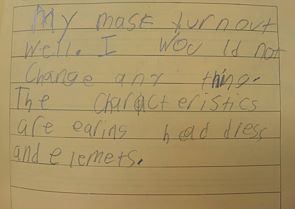 My mask turnout
well. I wou ld not
Change any thing.
The Charact eristics
are earing head dress
and elemets.